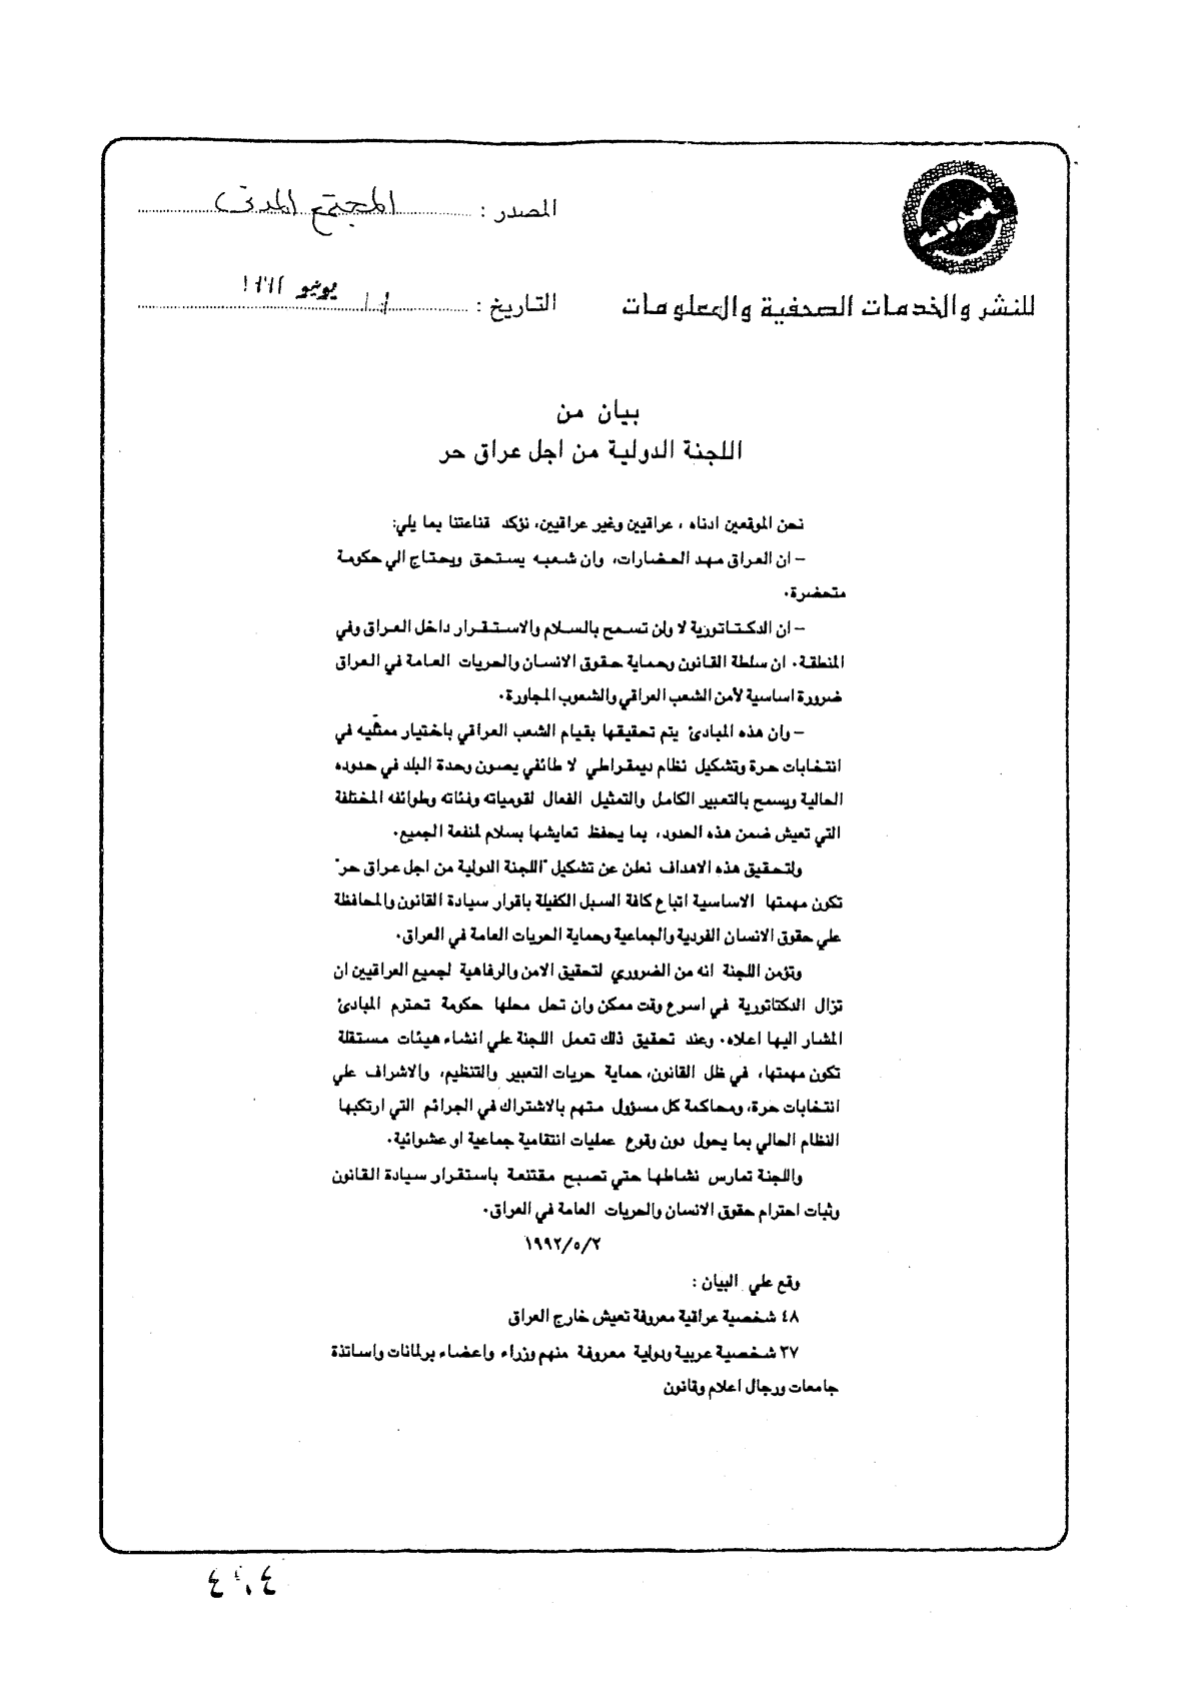 المصدر : المجتمع المدنى
للنشر والخدمات الصحفية والمعلومات
التاريخ : يونيو
بيان من
اللجنة الدولية من اجل عراق حر
نحن الموقعين ادناه ، عراقيين وغير عراقيين، نؤكد قناعتنا بما يلي:
– ان العراق مهد الحضارات، وان شعبه يستحق ويحتاج الي حكومة
متحضرة.
– ان الدكتاتورية لا ولن تسمح بالسلام والاستقرار داخل العراق وفي
المنطقة. ان سلطة القانون وحماية حقوق الانسان والحريات العامة في العراق
ضرورة اساسية لأمن الشعب العراقي والشعوب المجاورة.
– وان هذه المبادئ يتم تحقيقها بقيام الشعب العراقي باختيار ممثليه في
انتخابات حرة وتشكيل نظام ديمقراطي لا طائفي يصون وحدة البلد في حدوده
الحالية ويسمح بالتعبير الكامل والتمثيل الفعال لقومياته وفئاته وطوائفه المختلفة
التي تعيش ضمن هذه الحدود، بما يحفظ تعايشها بسلام لمنفعة الجميع.
ولتحقيق هذه الاهداف نعلن عن تشكيل "اللجنة الدولية من اجل عراق حر"
تكون مهمتها الاساسية اتباع كافة السبل الكفيلة باقرار سيادة القانون والمحافظة
علي حقوق الانسان الفردية والجماعية وحماية الحريات العامة في العراق.
وتؤمن اللجنة انه من الضروري لتحقيق الامن والرفاهية لجميع العراقيين ان
تزال الدكتاتورية في اسرع وقت ممكن وان تحل محلها حكومة تحترم المبادئ
المشار اليها اعلاه. وعند تحقيق ذلك تعمل اللجنة علي انشاء هيئات مستقلة
تكون مهمتها، في ظل القانون، حماية حريات التعبير والتنظيم، والاشراف علي
انتخابات حرة، ومحاكمة كل مسؤول متهم بالاشتراك في الجرائم التي ارتكبها
النظام الحالي بما يحول دون وقوع عمليات انتقامية جماعية او عشوائية.
واللجنة تمارس نشاطها حتي تصبح مقتنعة باستقرار سيادة القانون
وثبات احترام حقوق الانسان والحريات العامة في العراق.
١٩٩٢/٥/٢
وقع علي البيان :
٤٨ شخصية عراقية معروفة تعيش خارج العراق
٢٧ شخصية عربية ودولية معروفة منهم وزراء واعضاء برلمانات واساتذة
جامعات ورجال اعلام وقانون